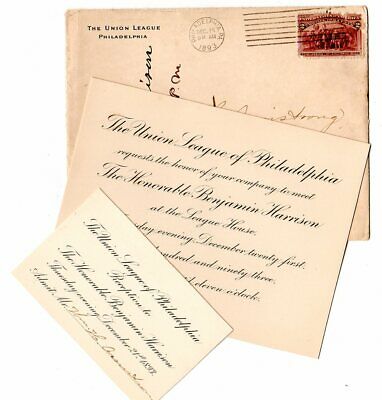 THE UNION LEAGUE
PHILADELPHIA
PHILADELPHIA, PA.
DEC
1893
The Union League of Philadelphia
requests the honor of your company to meet
The Honorable Benjamin Harrison
at the League House,
evening December twenty first,
and ninety three,
eleven o'clock.
The Union League of Philadelphia
Reception to
The Honorable Benjamin Harrison
Thursday evening, December 21st 1893.
Admit Mr